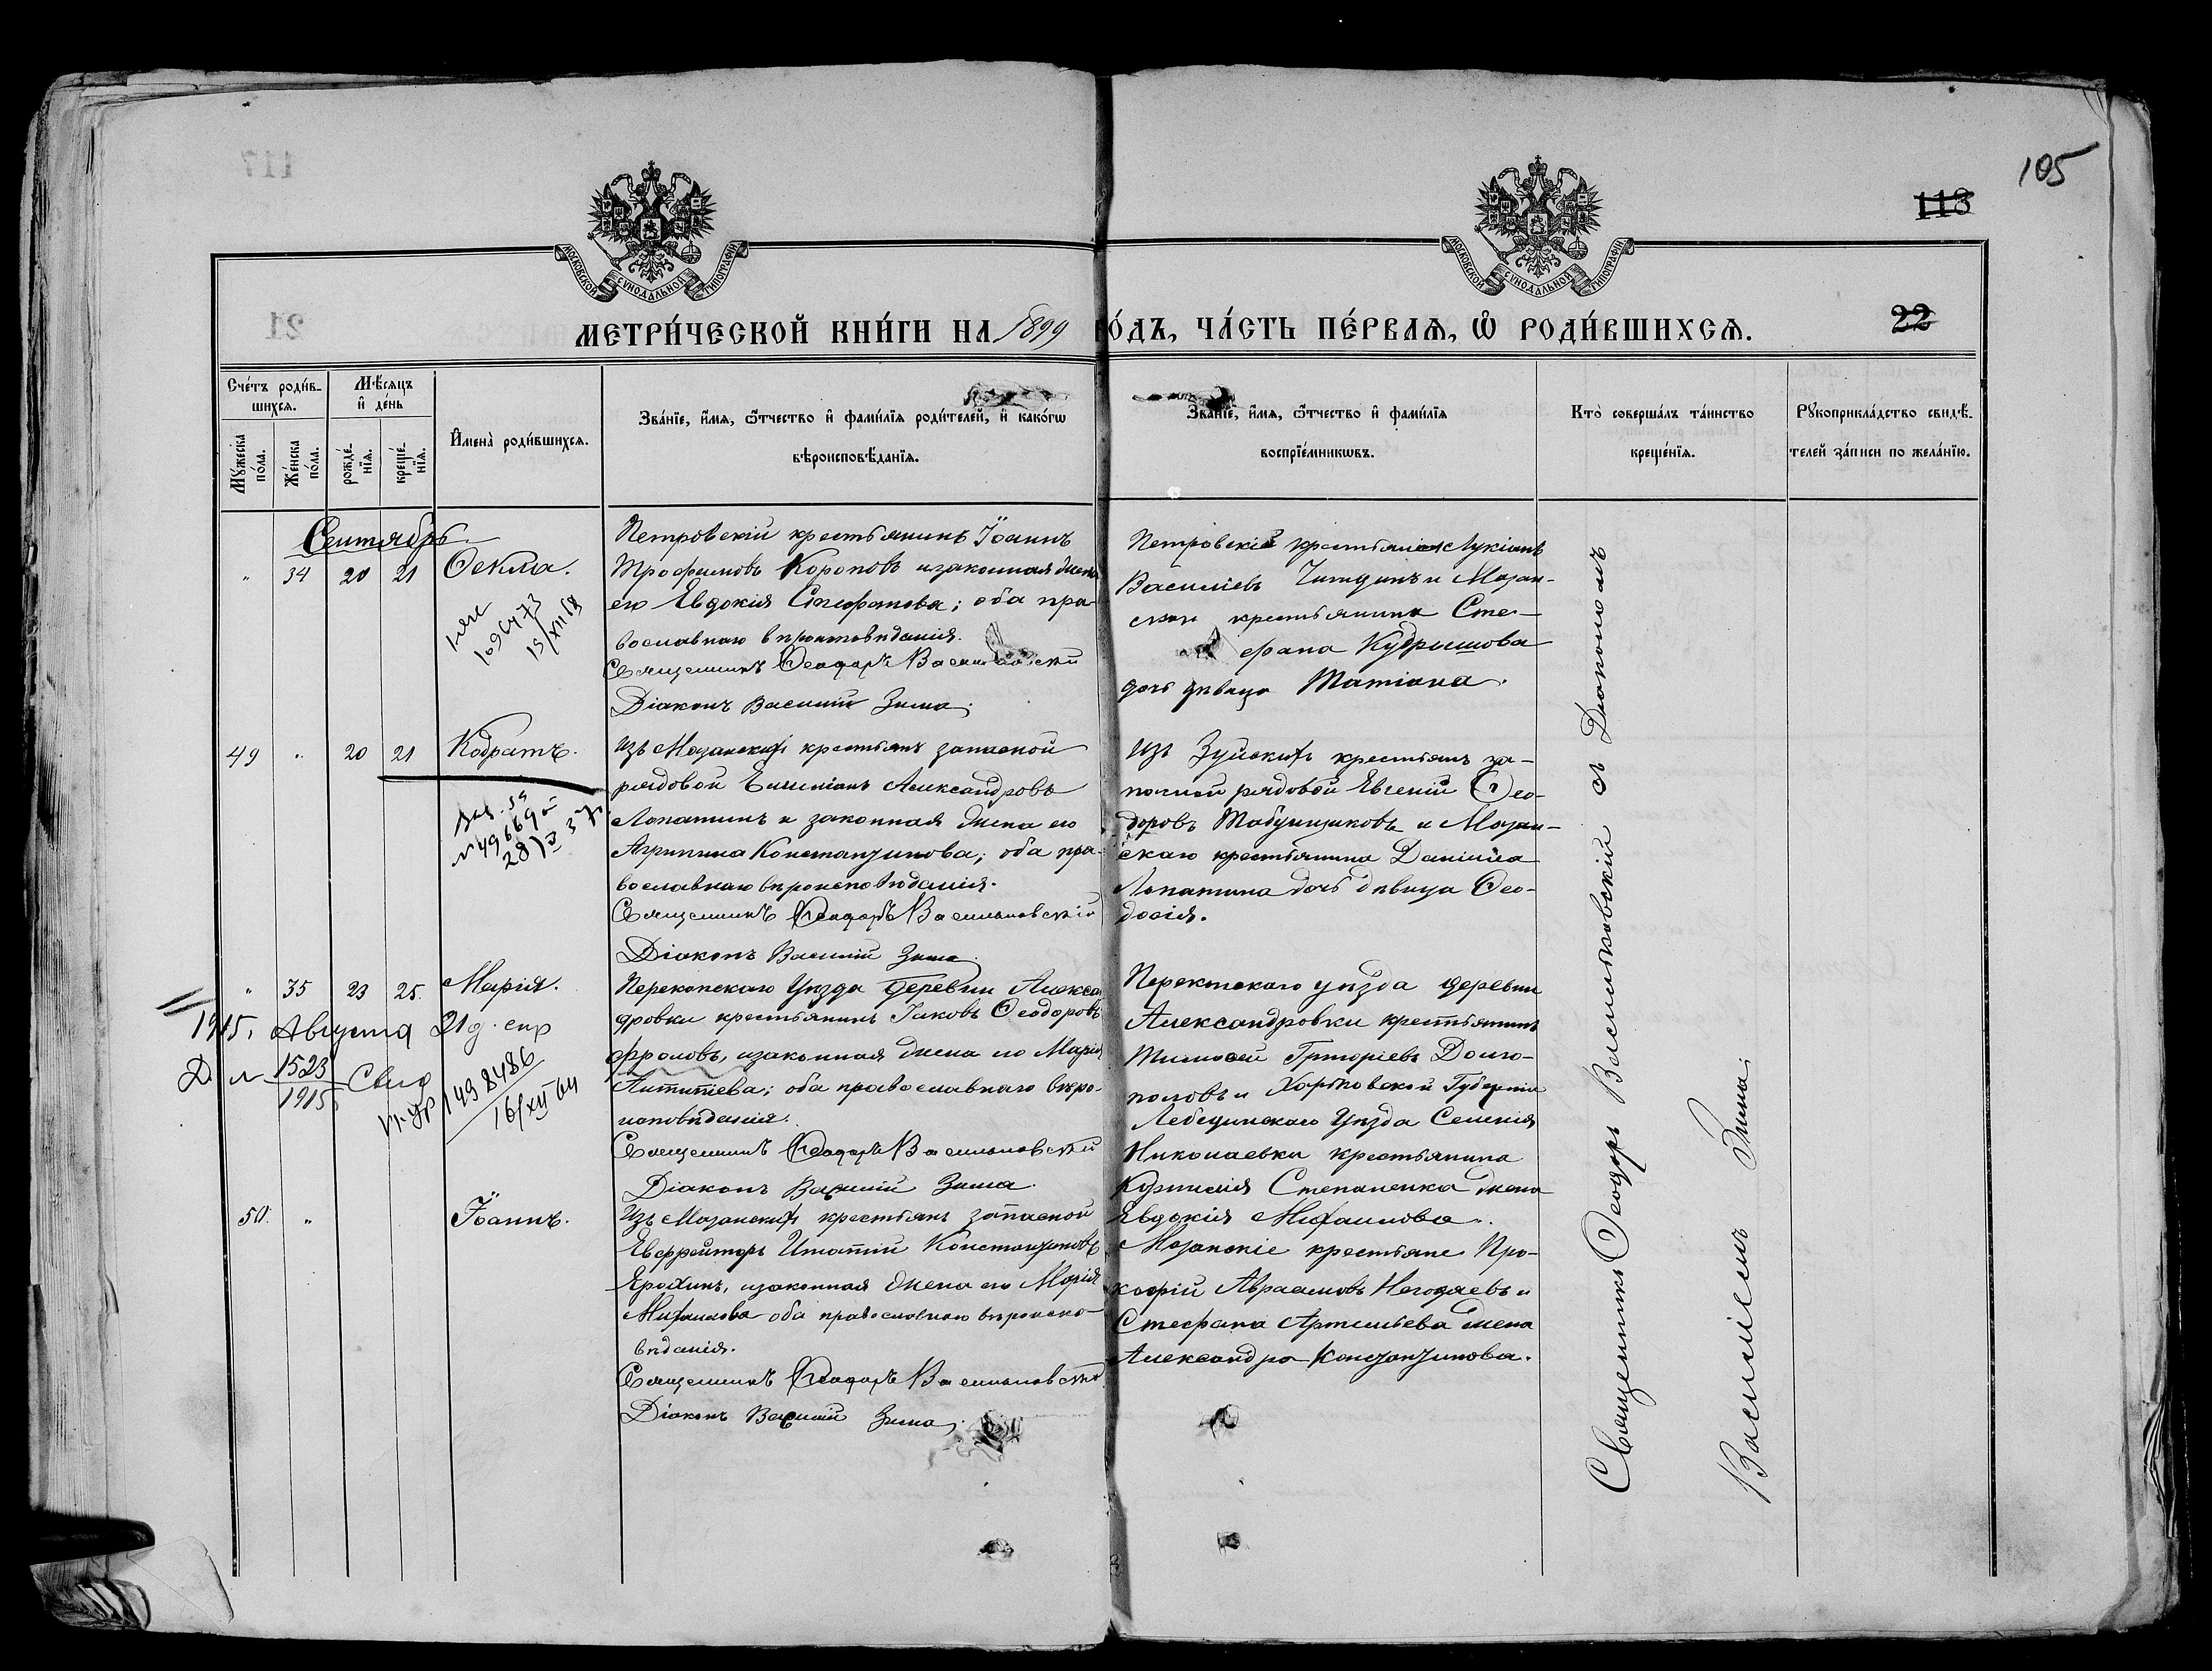 105
113
117
МОСКОВСКОЙ СѴНОДАЛЬНОЙ ТИПОГРАФІИ
МОСКОВСКОЙ СѴНОДАЛЬНОЙ ТИПОГРАФІИ
21
МЕТРИ́ЧЕСКОЙ КНИ́ГИ НА 1899 ГО́ДЪ, ЧА́СТЬ ПЕ́РВАѦ, Ѡ҆ РОДИ́ВШИХСѦ.
22
Сче́тъ роди́в-
шихсѧ.
Мꙋ́жеска по́ла.
Же́нска по́ла.
Мѣ́сѧцъ
и҆ де́нь
рожде́-
нїѧ.
креще́-
нїѧ.
И҆мена̀ роди́вшихсѧ.
Зва́нїе, и҆́мѧ, ѻ҆́тчество и҆ фами́лїѧ роди́телей, и҆ како́гѡ
вѣроисповѣ́данїѧ.
Зва́нїе, и҆́мѧ, ѻ҆́тчество и҆ фами́лїѧ
воспрїе́мникѡвъ.
Кто̀ соверша́лъ та́инство
креще́нїѧ.
Рꙋкоприкла́дство свидѣ́-
телей за́писи по жела́нїю.
Сентябрь.
" 34 20 21 Ѳекла.
169473
19/XII 69
Петровскій крестьянинъ Іоаннъ
Трофимовъ Короповъ и законная жена
его Евдокія Стефанова; оба пра-
вославнаго вѣроисповѣданія.
Священникъ Ѳеодоръ Васильковскій
Діаконъ Василій Зима.
Петровскій крестьянинъ Лукіанъ
Василіевъ и Мазан-
скаго крестьянина Сте-
фана Кудряшова
дочь дѣвица Татіана.
49 " 20 21 Кодратъ.
Изъ Мазанскихъ крестьянъ запасной
рядовой Емиліанъ Александровъ
Лопатинъ и законная жена его
Агрипина Константинова; оба пра-
вославнаго вѣроисповѣданія.
Священникъ Ѳеодоръ Васильковскій
Діаконъ Василій Зима.
Изъ Зуйскихъ крестьянъ за-
пасной рядовой Евгеній Ѳео-
доровъ Табунщиковъ и Мазан-
скаго крестьянина Даніила
Лопатина дочь дѣвица Ѳео-
досія.
" 35 23 25. Марія.
1915, Августа 21 д.
Д № 1523
1915
1498486
16/XII 64
Перекопскаго уѣзда деревни Алекса-
дровки крестьянинъ Іаковъ Ѳеодоровъ
Фроловъ, и законная жена его Марія
Антипіева; оба православнаго вѣро-
исповѣданія.
Священникъ Ѳеодоръ Васильковскій
Діаконъ Василій Зима.
Перекопскаго уѣзда деревни
Александровки крестьянинъ
Тимоѳей Григоріевъ Долго-
половъ и Харьковской Губерніи
Лебединскаго уѣзда Селенія
Николаевки крестьянина
Степаненка жена
Евдокія Михаилова.
50. " Іоаннъ.
Изъ Мазанскихъ крестьянъ запасной
Ефрейторъ Ипатій Константиновъ
Ерохинъ, и законная жена его Марія
Михаилова оба православнаго вѣроиспо-
вѣданія.
Священникъ Ѳеодоръ Васильковскій
Діаконъ Василій Зима.
Мазанскіе крестьяне Про-
кофій Авраамовъ Негодяевъ и
Стефана Артемьева жена
Александра Константинова.
Священникъ Ѳеодоръ Васильковскій съ Діакономъ
Василіемъ Зима.